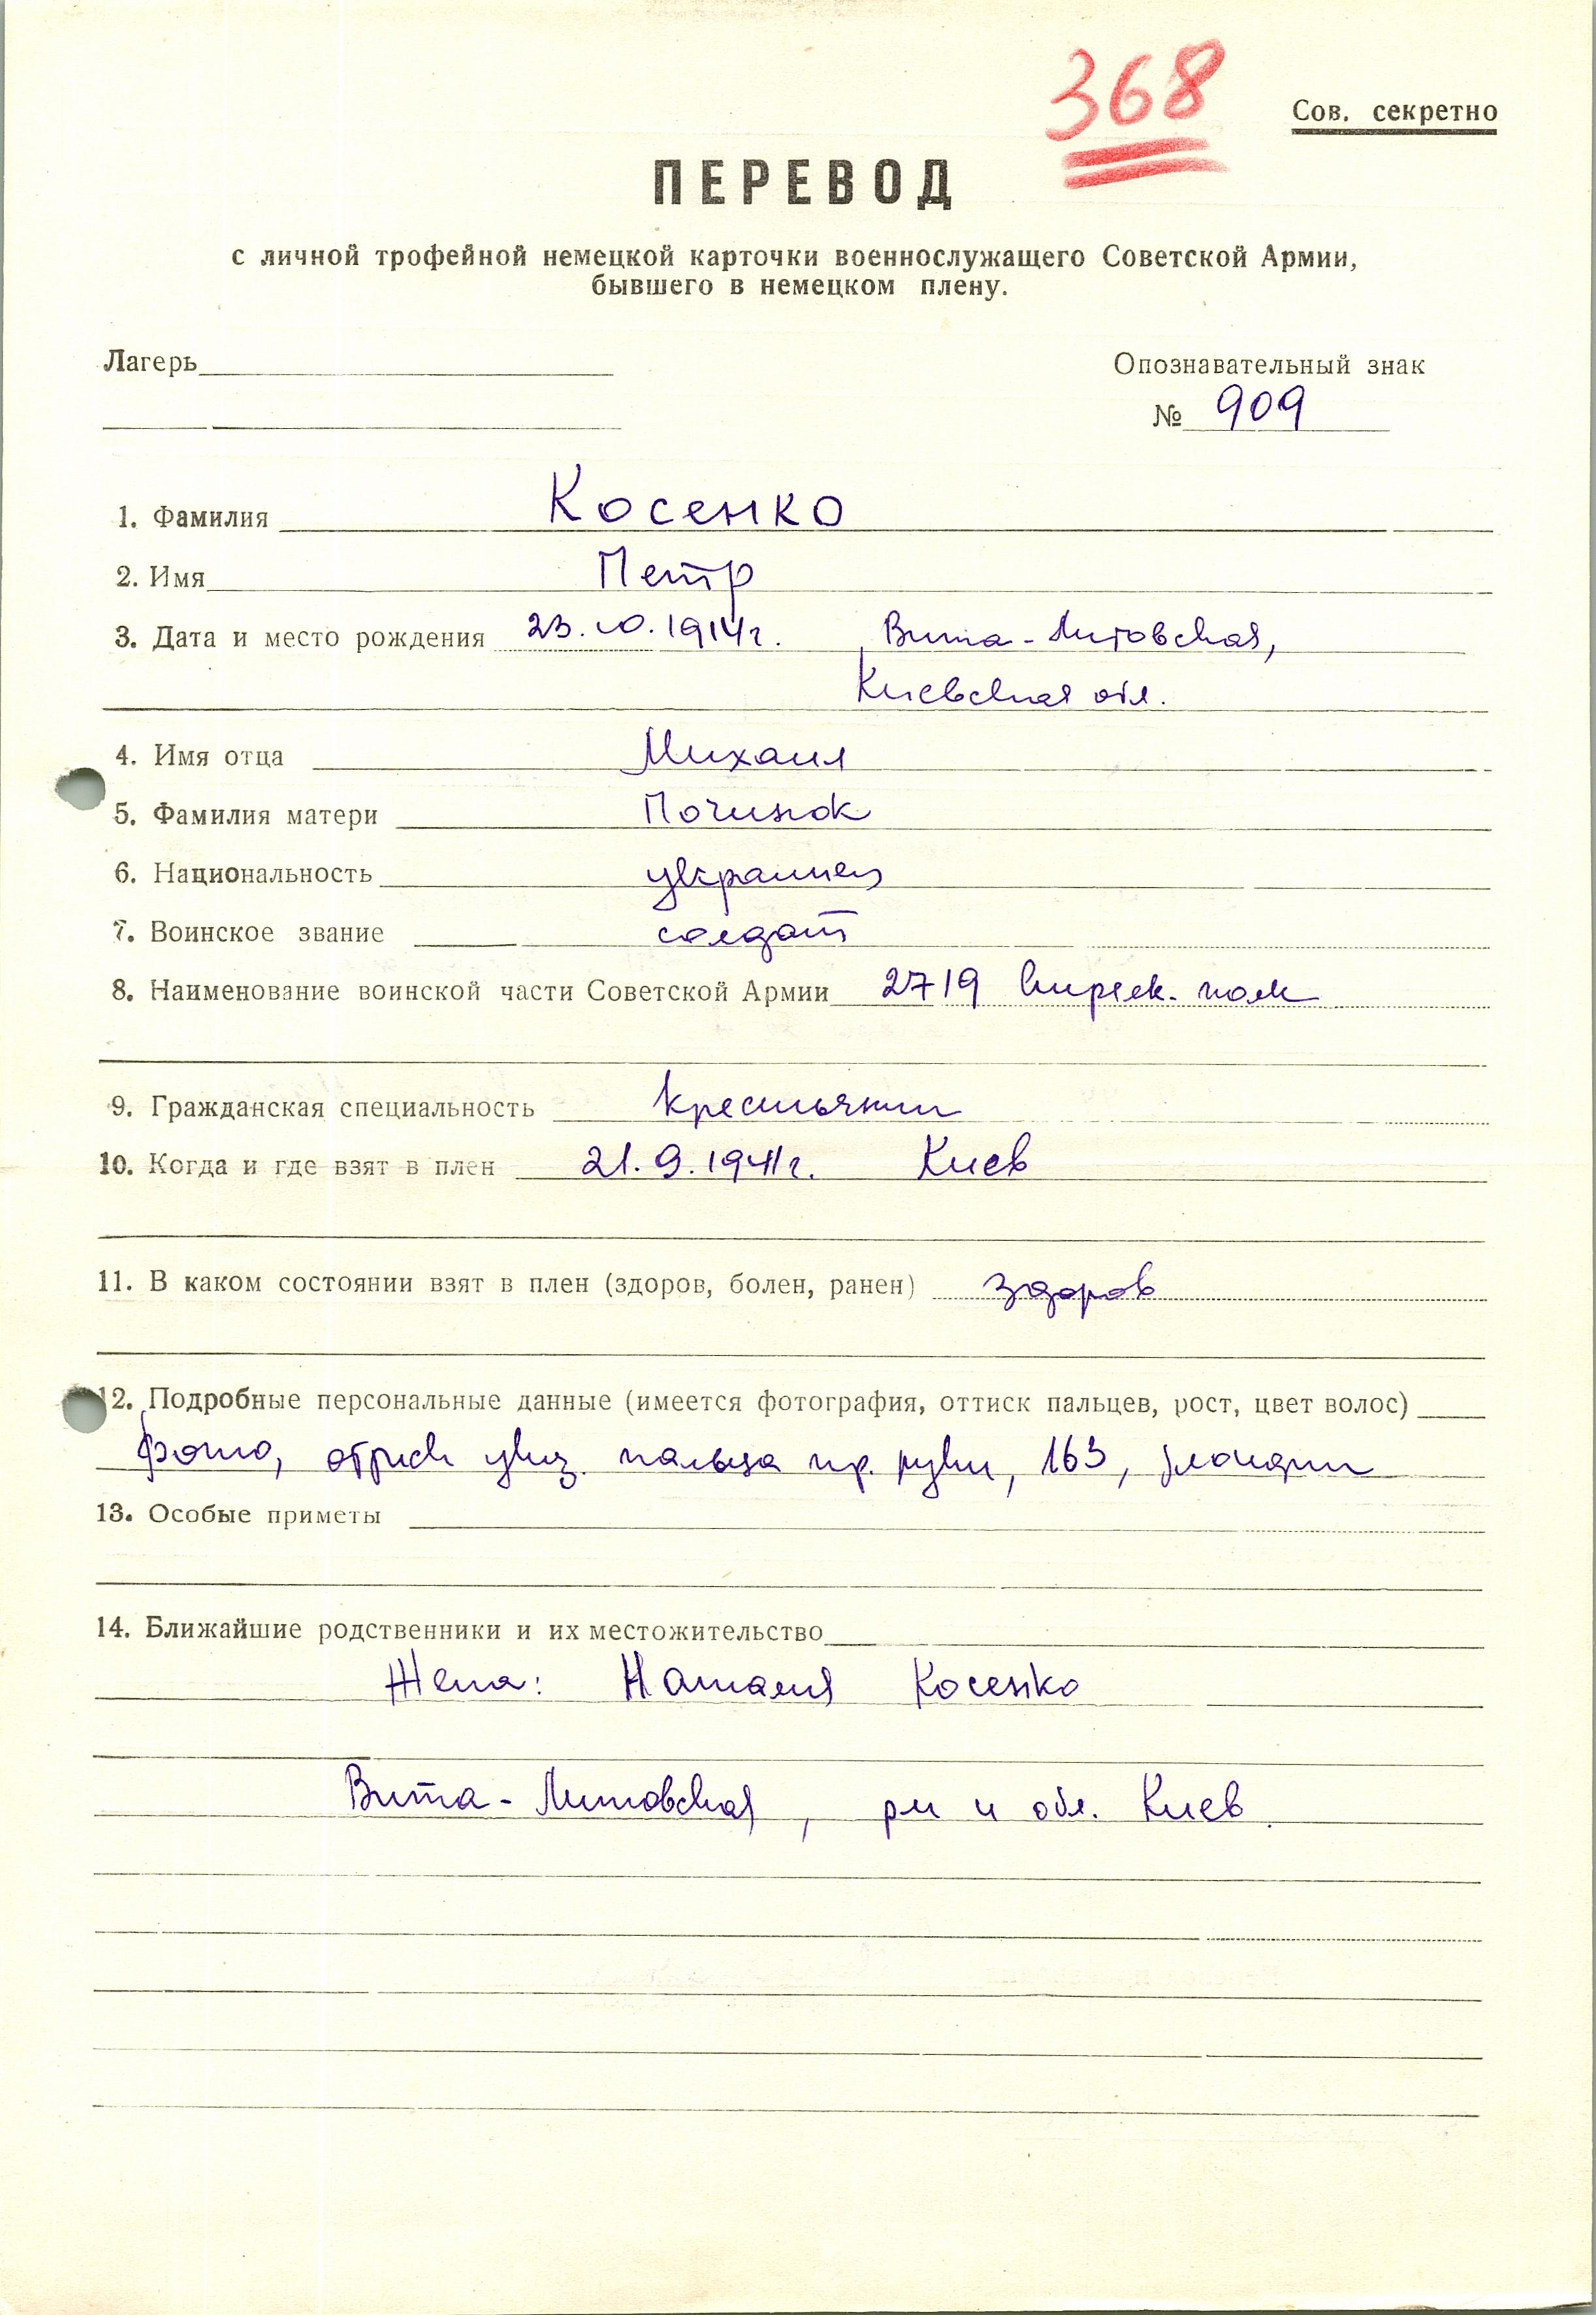 368
Сов. секретно
ПЕРЕВОД
с личной трофейной немецкой карточки военнослужащего Советской Армии,
бывшего в немецком плену.
Лагерь
Опознавательный знак
№ 909
1. Фамилия Косенко
2. Имя Петр
3. Дата и место рождения 23.10.1914г. Вита-Литовская,
Киевская обл.
4. Имя отца Михаил
5. Фамилия матери Починок
6. Национальность украинец
7. Воинское звание солдат
8. Наименование воинской части Советской Армии 2719 полк
9. Гражданская специальность крестьянин
10. Когда и где взят в плен 21.9.1941г. Киев
11. В каком состоянии взят в плен (здоров, болен, ранен) здоров
12. Подробные персональные данные (имеется фотография, оттиск пальцев, рост, цвет волос)
фото, указ. пальца пр. руки, 163, блондин
13. Особые приметы
14. Ближайшие родственники и их местожительство
Жена: Наталия Косенко
Вита-Литовская, и обл. Киев.